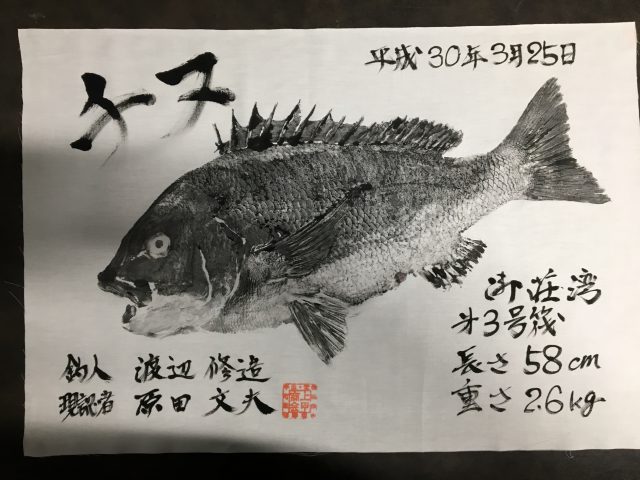 平成30年3月25日
チヌ
御荘湾
才3号筏
長さ58cm
重さ2.6kg
釣人 渡辺 修造
現認者 原田 文夫